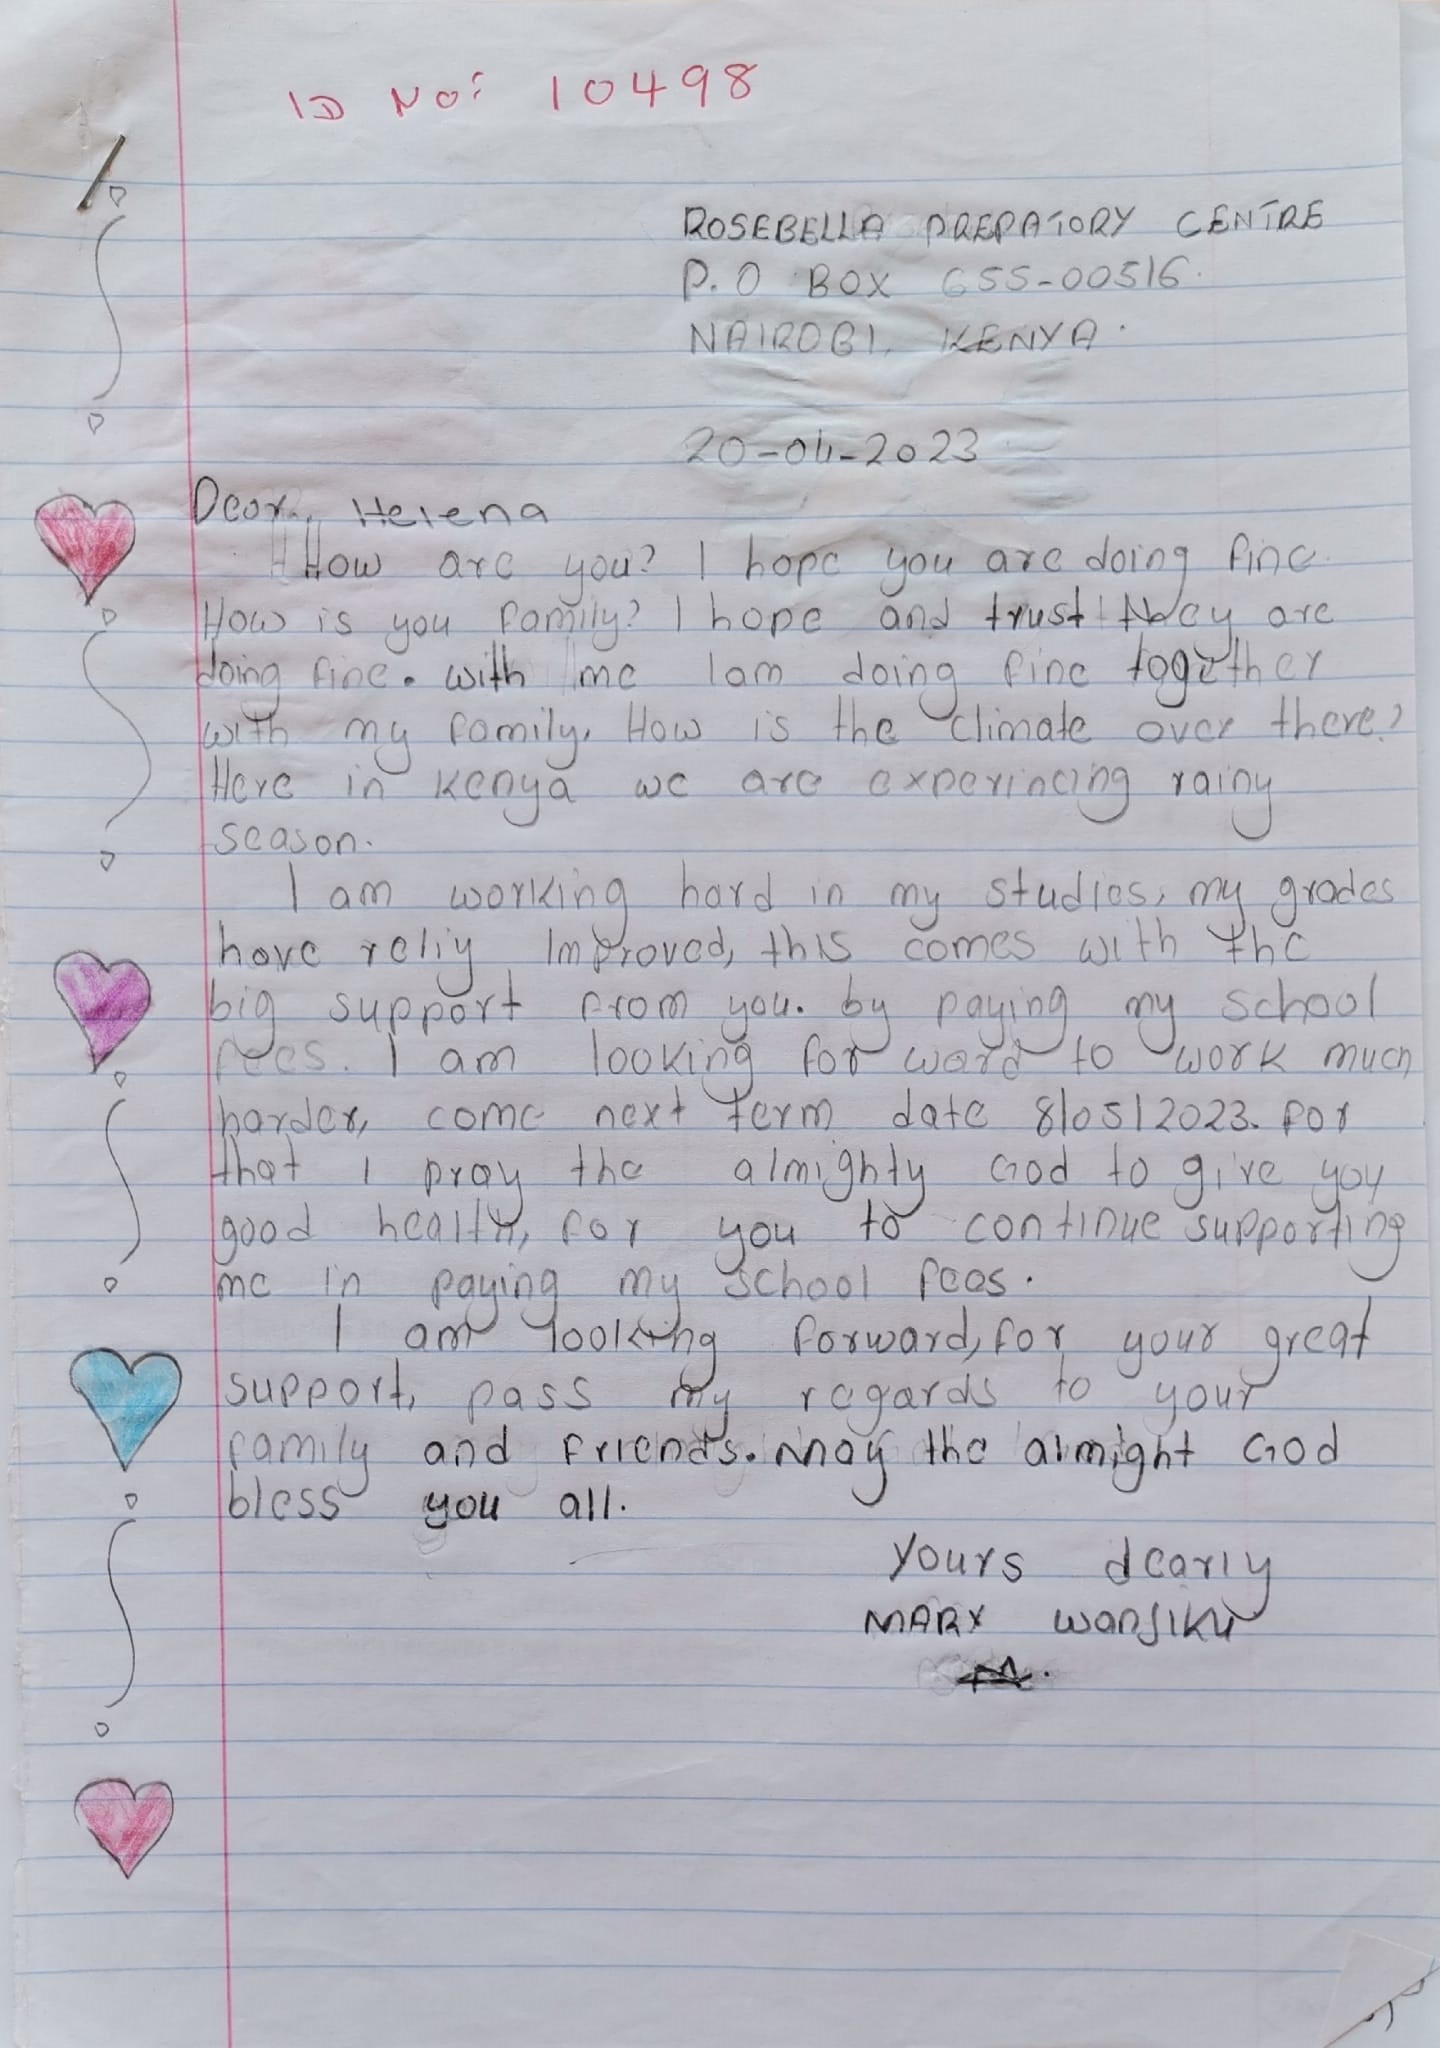 ID No: 10498
ROSEBELLA PREPATORY CENTRE
P.O BOX 655-00516.
NAIROBI, KENYA.
20-04-2023
Dear, Helena
How are you? I hope you are doing fine.
How is you family? I hope and trust they are
doing fine. with me Iam doing fine together
with my family. How is the climate over there?
Here in Kenya we are experincing rainy
season.
I am working hard in my studies, my grades
have reliy Improved, this comes with the
big support from you. by paying my school
fees. I am looking for ward to work much
harder, come next term date 8/05/2023. for
that I pray the almighty God to give you
good health, for you to continue supporting
me in paying my school fees.
I am looking forward, for your great
support, pass my regards to your
family and friends. May the almight God
bless you all.
Yours dearly
MARY WANJIKU